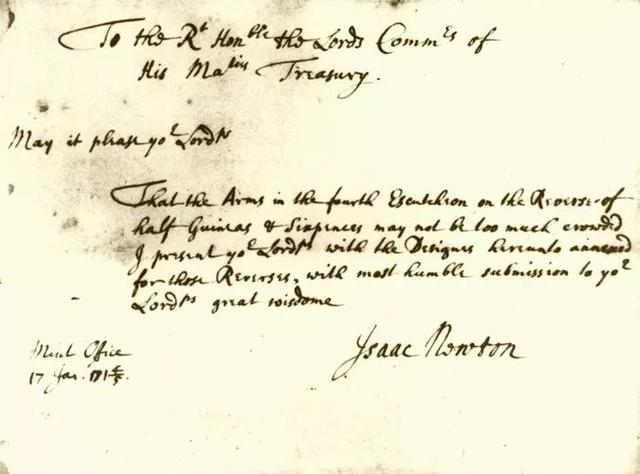 To the Rt Honble the Lords Commrs of
His Maties Treasury.
May it please yor Lordps
That the Arms in the fourth Escutcheon on the Reverse of
half Guineas & Sixpences may not be too much crowded
I present yor Lordps with the Designes hereunto annexed
for those Reverses, with most humble submission to yor
Lordps great wisdome
Isaac Newton
Mint Office
17 Jan. 1714/5.